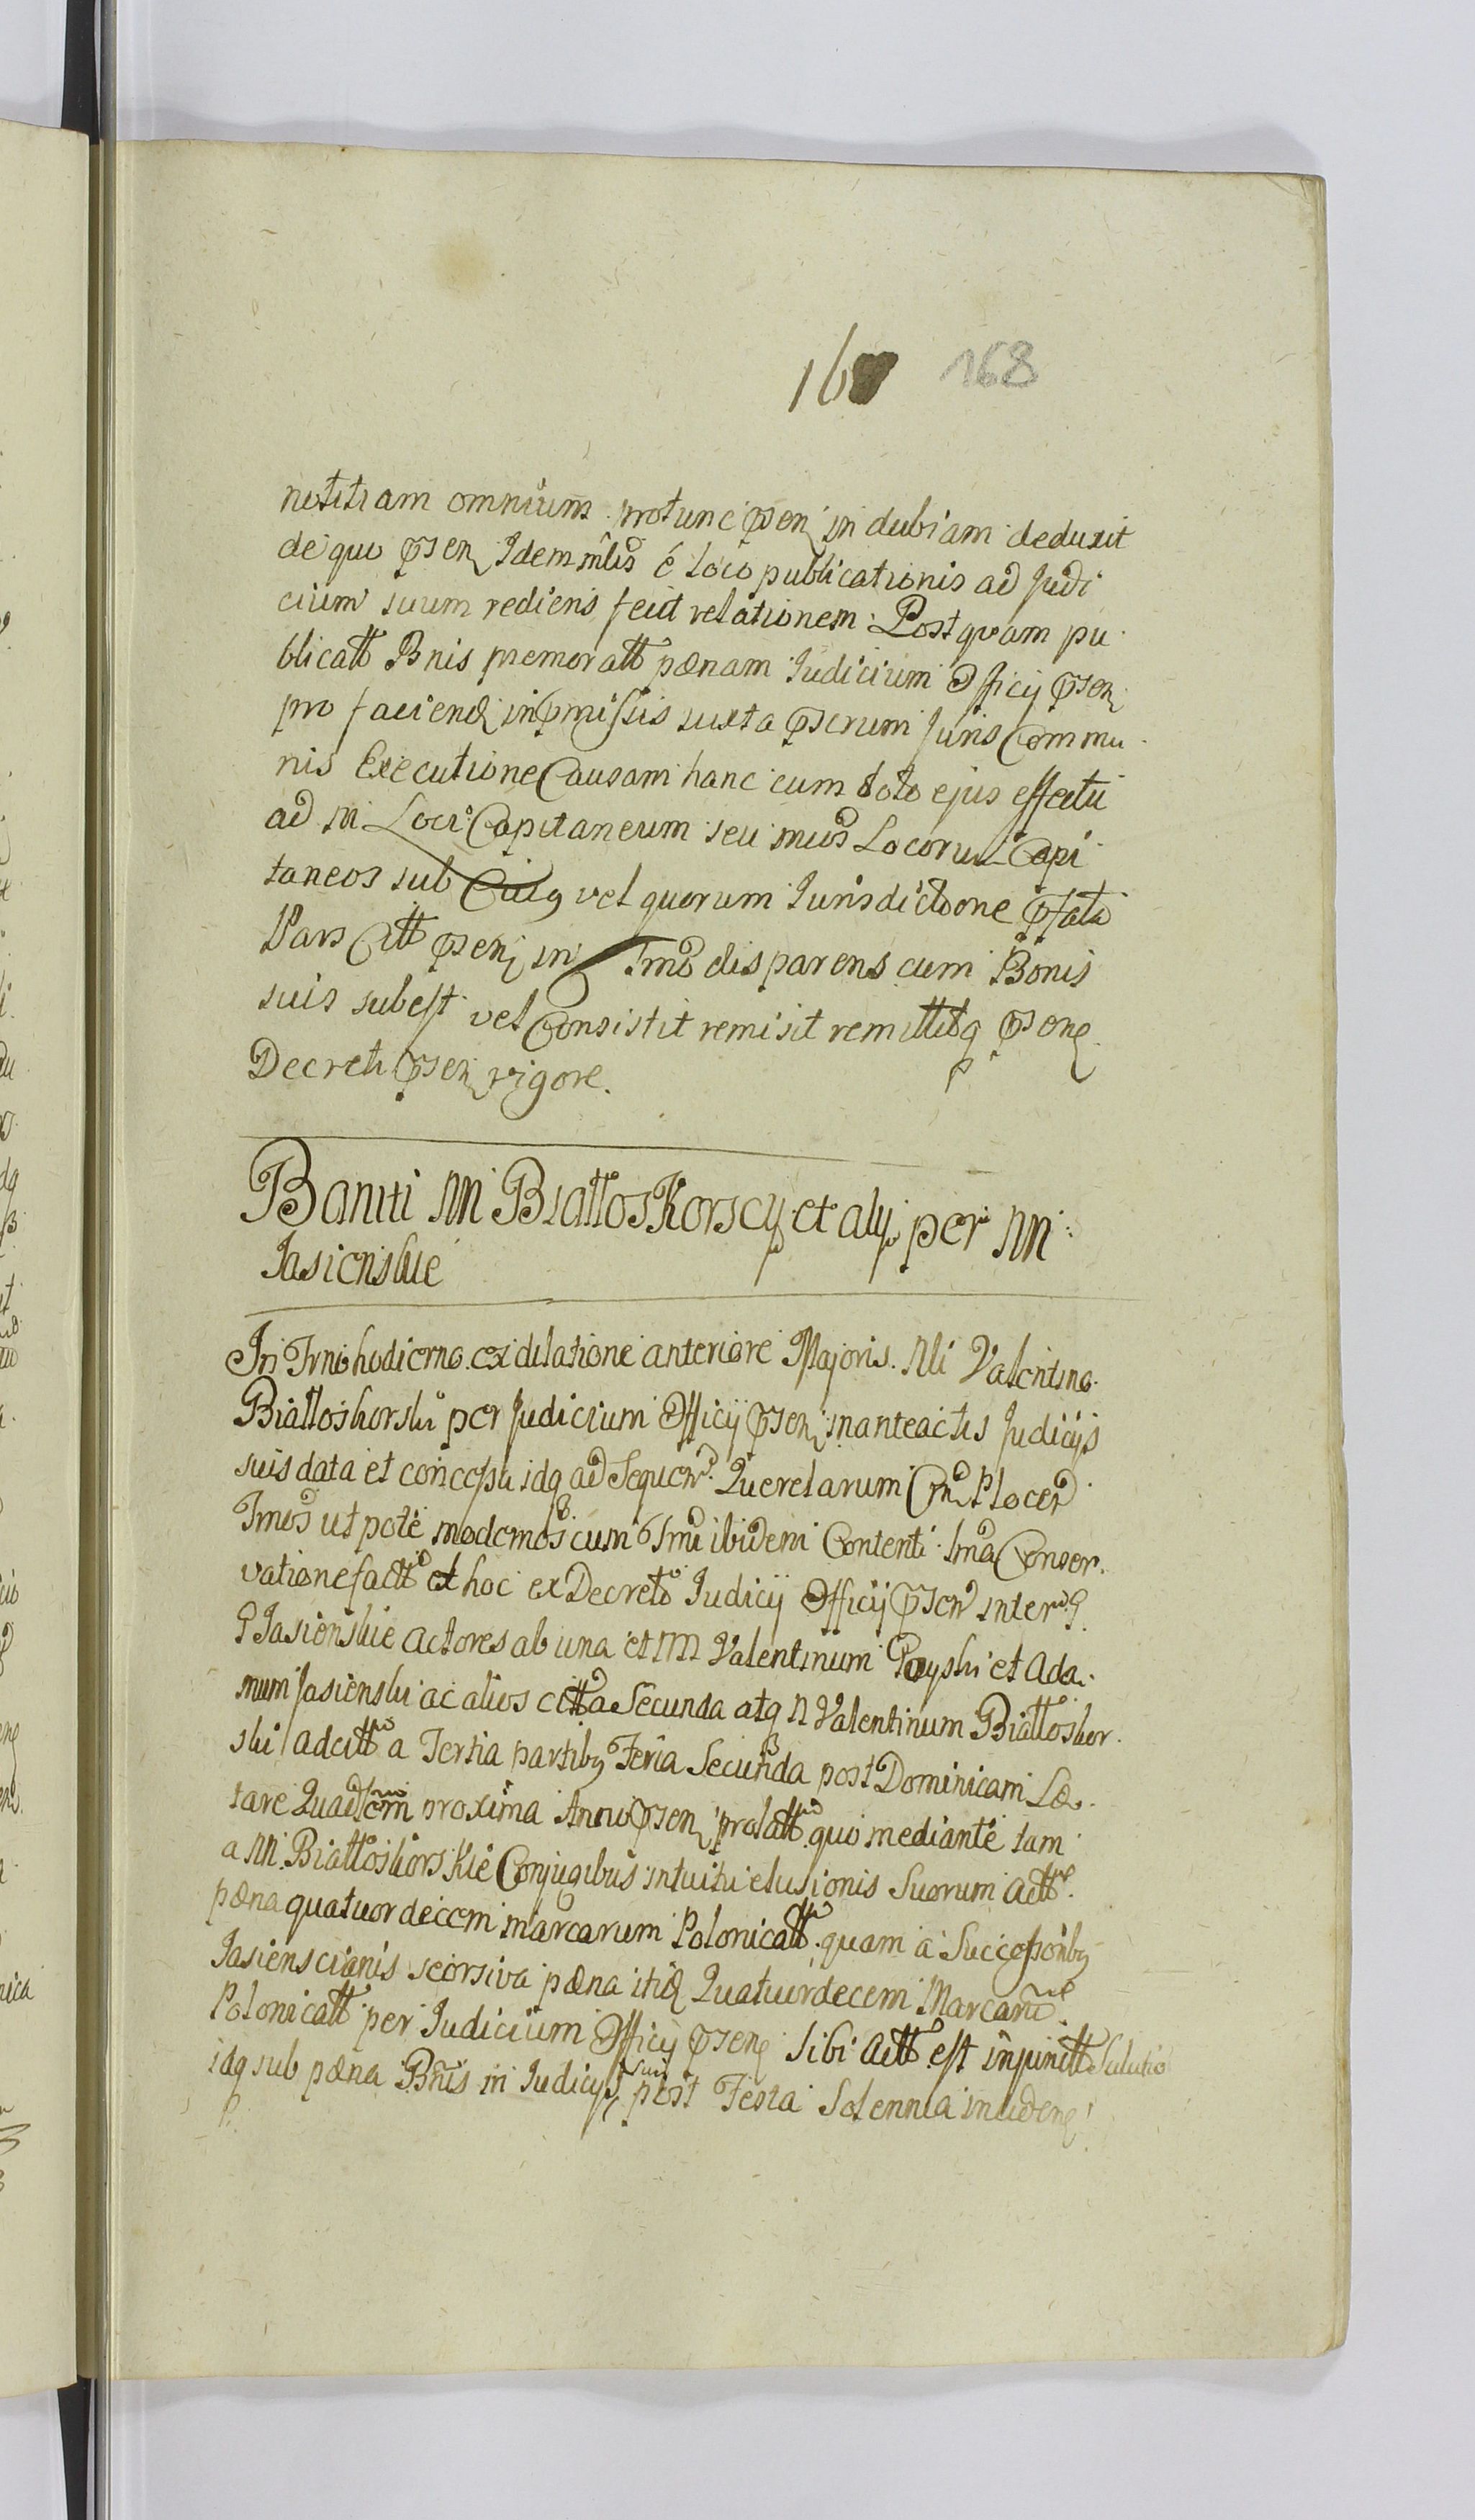 168 168
notitiam omnium protunc psen indubiam deduxit
de quo psen Idem mlis é loco publicationis ad Judi
cium suum rediens fecit relationem. Postquam pu
blicatt Bnis premoratt pœnam Judicium Officij psen
pro faciend inpmissis iuxta pscrum Juris Commu
nis Executione Causam hanc cum toto ejus effectu
ad Loci Capitaneum seu Locorum Capi
taneos sub Cuiq vel quorum Jurisdictione pfata
Pars Citt psen in Tmo disparens cum Bonis
suis subest vel Consistit remisit remittitq psene
Decreti psen vigore.
Baniti NN Białłoskorscy et alij per NN
Jasienskie
In Trno hodierno ex dilatione anteriore Majoris. Nli Valentino
Białłoskorski per Judicium Officij psen in anteactis Judicijs
suis data et concessa idq ad Sequen Querelarum
Tmos ut pote modernos cum Tmi ibidem Contenti Conser
vatione factt et hoc ex Decreto Judicij Officij psen inter
G Jasienskie Actores ab una et NN Valentinum et Ada
mum Jasienski ac alios citta Secunda atq N Valentinum Białłoskor
ski adcitt a Tertia partibq Feria Secunda post Dominicam Læ
tare proxima Anno psen prolatt quo mediante tam
a NN. Białłoskorskie Conjugibus intuitu elusionis Suorum Actt
pœna quatuordecem marcarum Polonicatt quam a Successoribq
Jasienscianis seorsiva pœna itid Quatuordecem Marcarum
Polonicatt per Judicium Officij psene sibi Actt est injunctt Solutio
idq sub pœna Bnis in Judicijs suis post Festa Solennia incidene